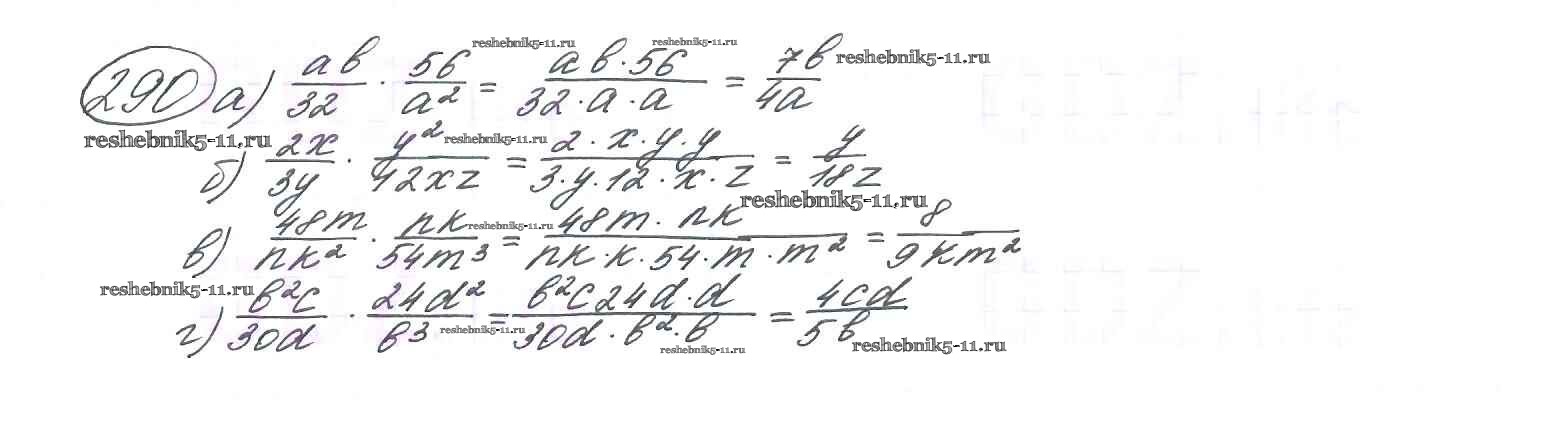 reshebnik5-11.ru reshebnik5-11.ru
290 а) ab/32 · 56/a² = ab·56/32·a·a = 7b/4a reshebnik5-11.ru
reshebnik5-11.ru reshebnik5-11.ru
б) 2x/3y · y²/12xz = 2·x·y·y/3·y·12·x·z = y/18z
reshebnik5-11.ru
в) 48m/nk² · nk/54m³ = 48m·nk/nk·k·54·m·m² = 8/9km²
reshebnik5-11.ru
reshebnik5-11.ru
г) b²c/30d · 24d²/b³ = b²c24d·d/30d·b²·b = 4cd/5b
reshebnik5-11.ru
reshebnik5-11.ru reshebnik5-11.ru